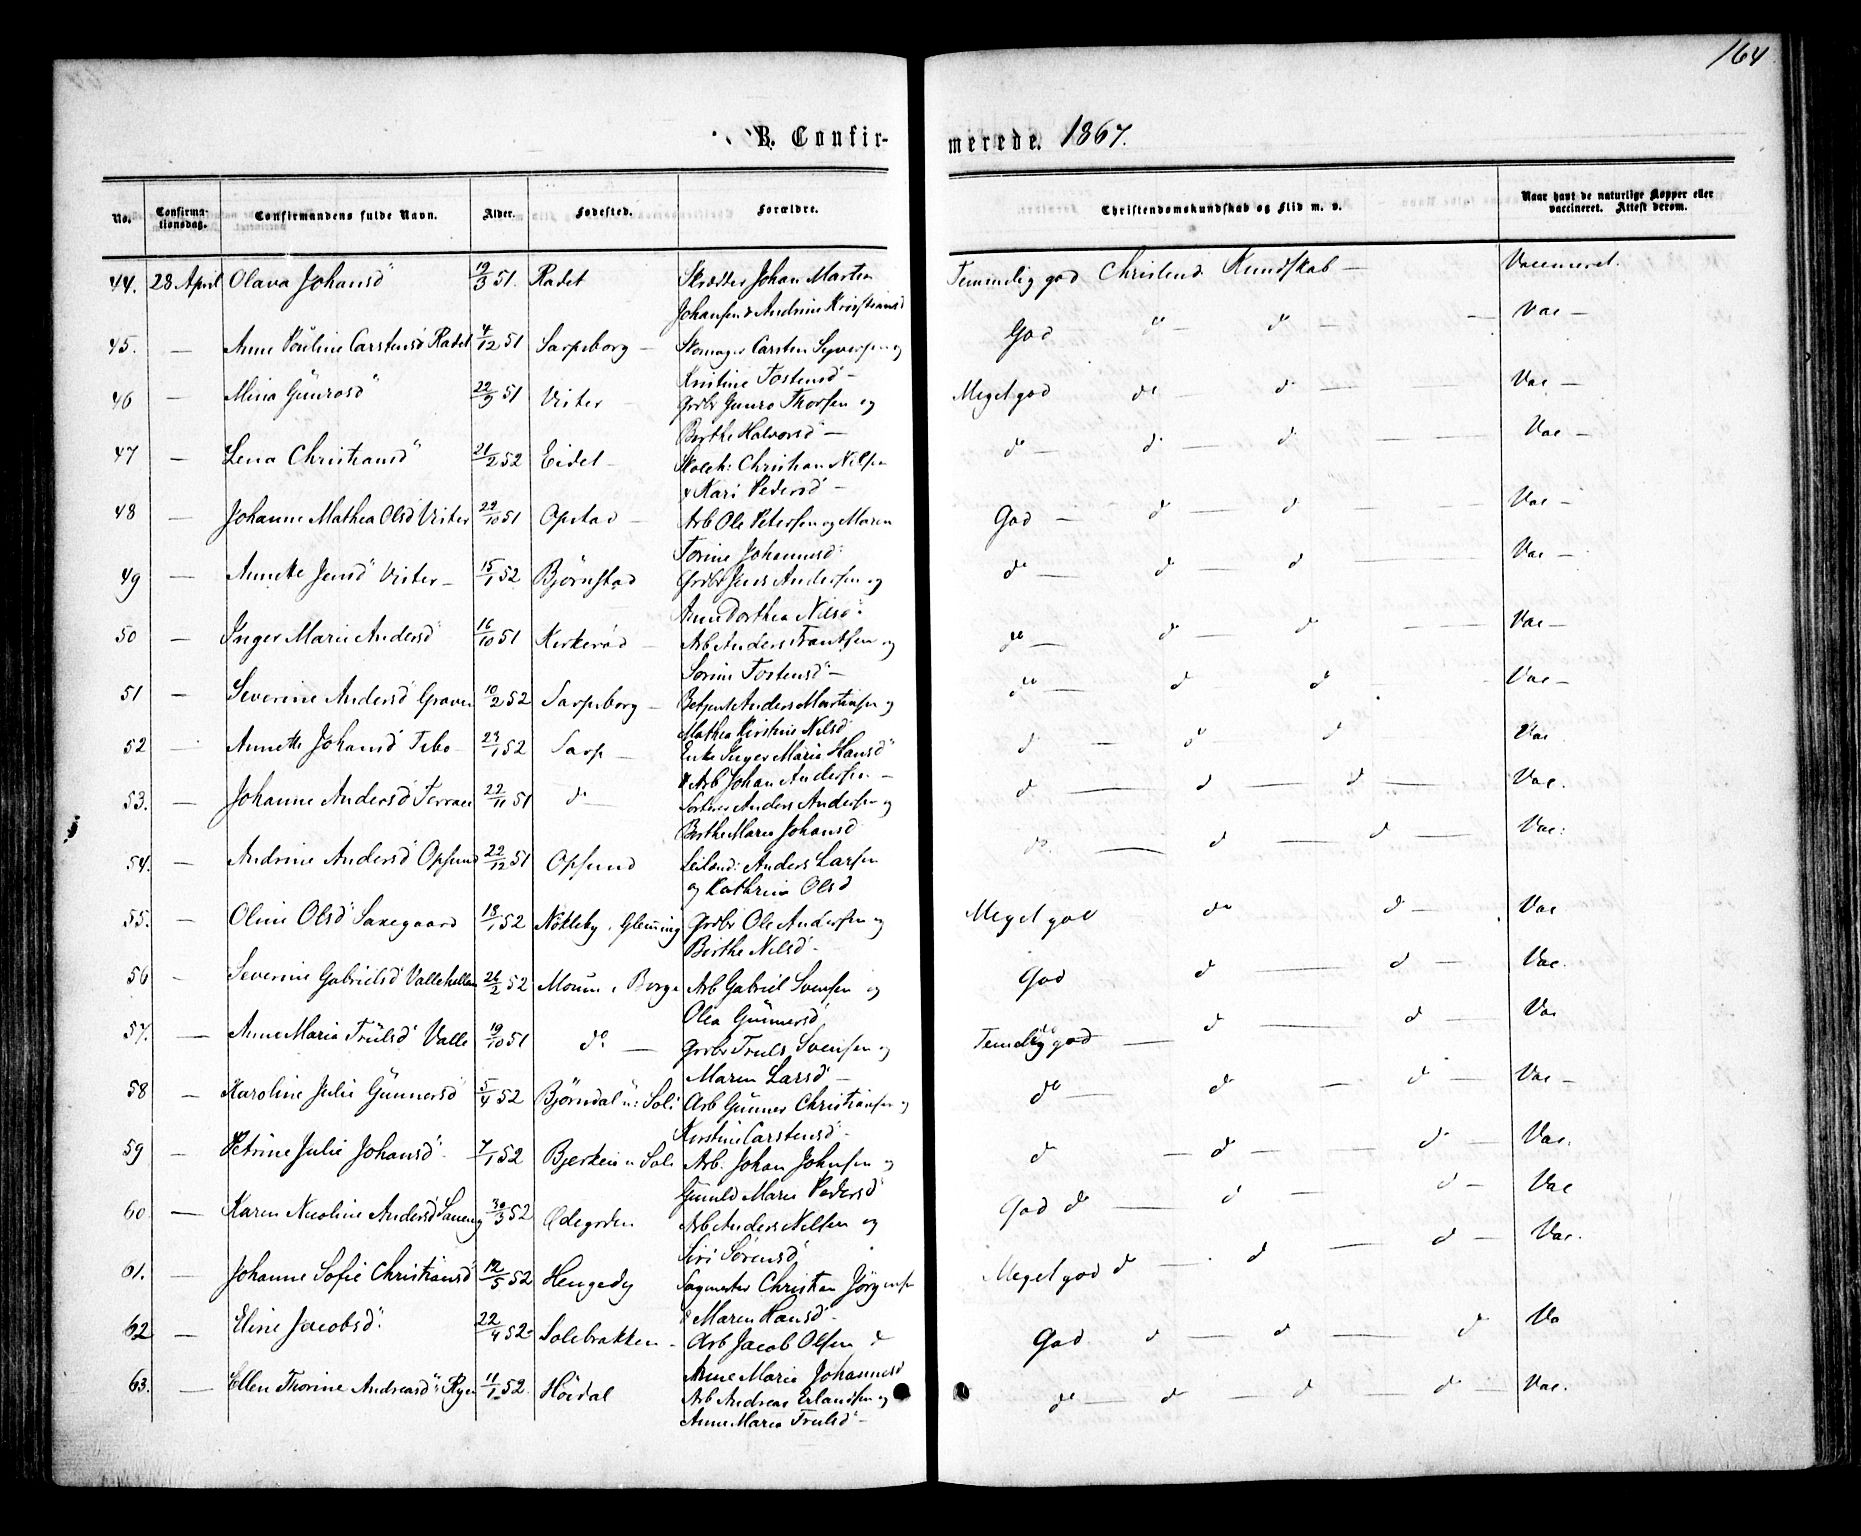 164
B. Confirmerede. 1867.
No. Confirmationsdag. Confirmandens fulde Navn. Alder. Fødested. Forældre. Christendomskundskab og Flid m. v. Naar havt de naturlige Kopper eller vaccineret. Attest derom.
44. 28 April Olava Johansd 19/3 51. Radet Skrædder Johan Martin Temmelig god Christend. Kundskab — Vaccineret.
Johansen & Andrine Kristiansd
45. — Anne Pauline Carstensd Radet 4/12 51 Sarpsborg — Skomager Carsten Syversen og God do — do — Vac —
Kristine Tostensd —
46 — Mina Gunrosd 22/9 51 Vister — Grdbr Gunro Thorsen og Meget god do — d — Vac —
Berthe Halvorsd —
47 — Lena Christiansd 21/2 52 Eidet — Skoleh: Christian Nilsen do — d — d — Vac —
& Kari Pedersd —
48 — Johanne Mathea Olsd Vister 22/10 51 Opstad — Arb Ole Petersen og Maren God — d — d — Vac —
Torine Johannesd:
49 — Annette Jensd Vister — 15/1 52 Bjørnstad Grdbr Jens Andersen og do — d — d — Vac —
Anne Dorthea Nilsd
50 — Inger Marie Andersd 16/10 51 Kirkerød — Arb Anders Frantsen og do — d — d — Vac —
Sorine Tostensd —
51 — Severine Andersd Graver 10/2 52 Sarpsborg — Betjent Anders Martinsen og do — d d Vac —
Mathea Kirstine Nilsd
52 — Annette Johansd Tebo — 23/1 52 Sarp — Enke Inger Marie Hansd d — do d Vac
& Arb Johan Andersen —
53. — Johanne Andersd 22/11 51 do — Anders Andersen og d — d — d — Vac.
Berthe Maren Johansd
54. — Andrine Andersd Opsund 22/12 51 Opsund Leilænd: Anders Larsen do. — d — d — Vac:
og Kathrine Olsd
55. — Oline Olsd Saxegaard 18/1 52 Nøkleby i Glemming Grdbr Ole Andersen og Meget god do d — Vac
Birthe Nilsd —
56 — Severine Gabrielsd Vallehellen 26/2 52 Moum i Borge Arb Gabriel Svensen og God d — d — Vac.
Olea Gunnersd
57. — Anne Maria Trulsd Valle 19/10 51 do — Grdbr Truls Svensen og Temelig god — d — d — Vac
Maren Larsd —
58 — Karoline Julie Gunnersd 5/4 52 Bjørndal u: Soli Arb Gunner Christiansen og do — d — d — Vac —
Kirstine Carstensd —
59 — Petrine Julie Johansd 7/1 52 u Soli Arb. Johan Johnsen og d — d — d — Vac.
Gunild Marie Pedersd
60 — Karen Nicoline Andersd 30/3 52 Ødegorden Arb Anders Nilsen og God do — d — d — Vac
Siri Sørensd
61. — Johanne Sofie Christiansd 12/5 52 Sagmester Christian Jörgensen Meget god d — d — d — Vac.
& Maren Hansd —
62 — Eline Jacobsd 22/4 52 Solebrakken — Arb Jacob Olsen & God d — d — d Va
Anne Marie Johannesd
63. — Ellen Thorine Andreasd 11/1 52. Höidal Arb Andreas Erlandsen og do — d — d — d — Vac.
Anne Maria Trulsd —